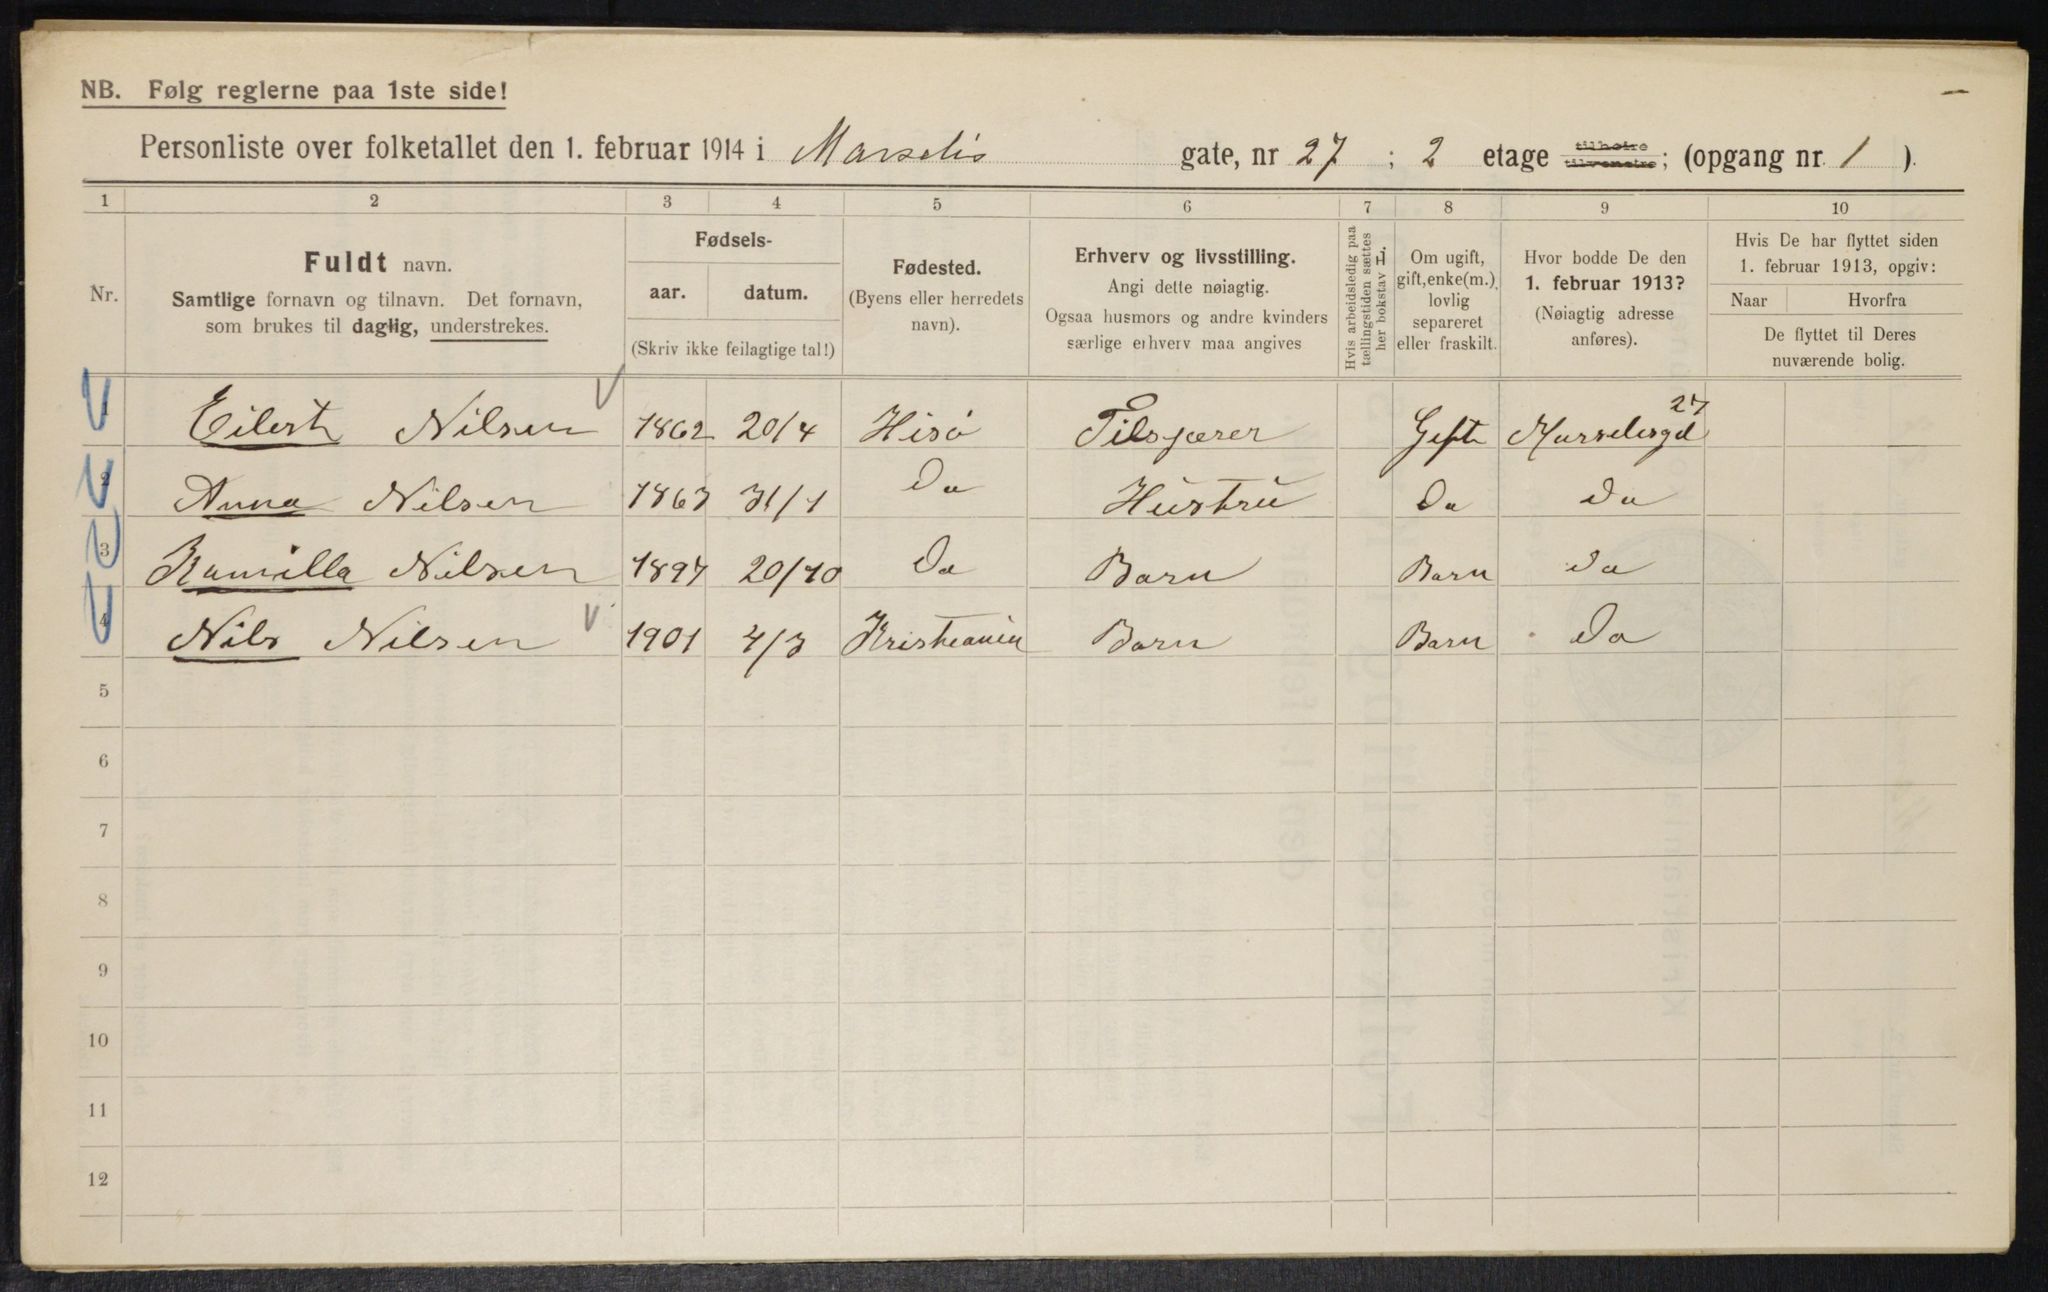 NB. Følg reglerne paa 1ste side!
Personliste over folketallet den 1. februar 1914 i Marselis gate, nr 27 ; 2 etage tilhøire tilvenstre; (opgang nr. 1 ).
1 2 3 4 5 6 7 8 9 10
Nr.
Fuldt navn.
Samtlige fornavn og tilnavn. Det fornavn,
som brukes til daglig, understrekes.
Fødsels-
aar. datum.
(Skriv ikke feilagtige tal!)
Fødested.
(Byens eller herredets
navn).
Erhverv og livsstilling.
Angi dette nøiagtig.
Ogsaa husmors og andre kvinders
særlige erhverv maa angives
Hvis arbeidsledig paa
tællingstiden sættes
her bokstav L.
Om ugift,
gift, enke(m.),
lovlig
separeret
eller fraskilt.
Hvor bodde De den
1. februar 1913?
(Nøiagtig adresse
anføres).
Hvis De har flyttet siden
1. februar 1913, opgiv:
Naar Hvorfra
De flyttet til Deres
nuværende bolig.
1 Eilert Nilsen 1862 20/4 Hisø Gift Marselisgd 27
2 Anna Nilsen 1863 31/1 Do Hustru Do Do
3 Kamilla Nilsen 1897 20/10 Do Barn Barn Do
4 Nils Nilsen 1901 4/3 Kristiania Barn Barn Do
5
6
7
8
9
10
11
12